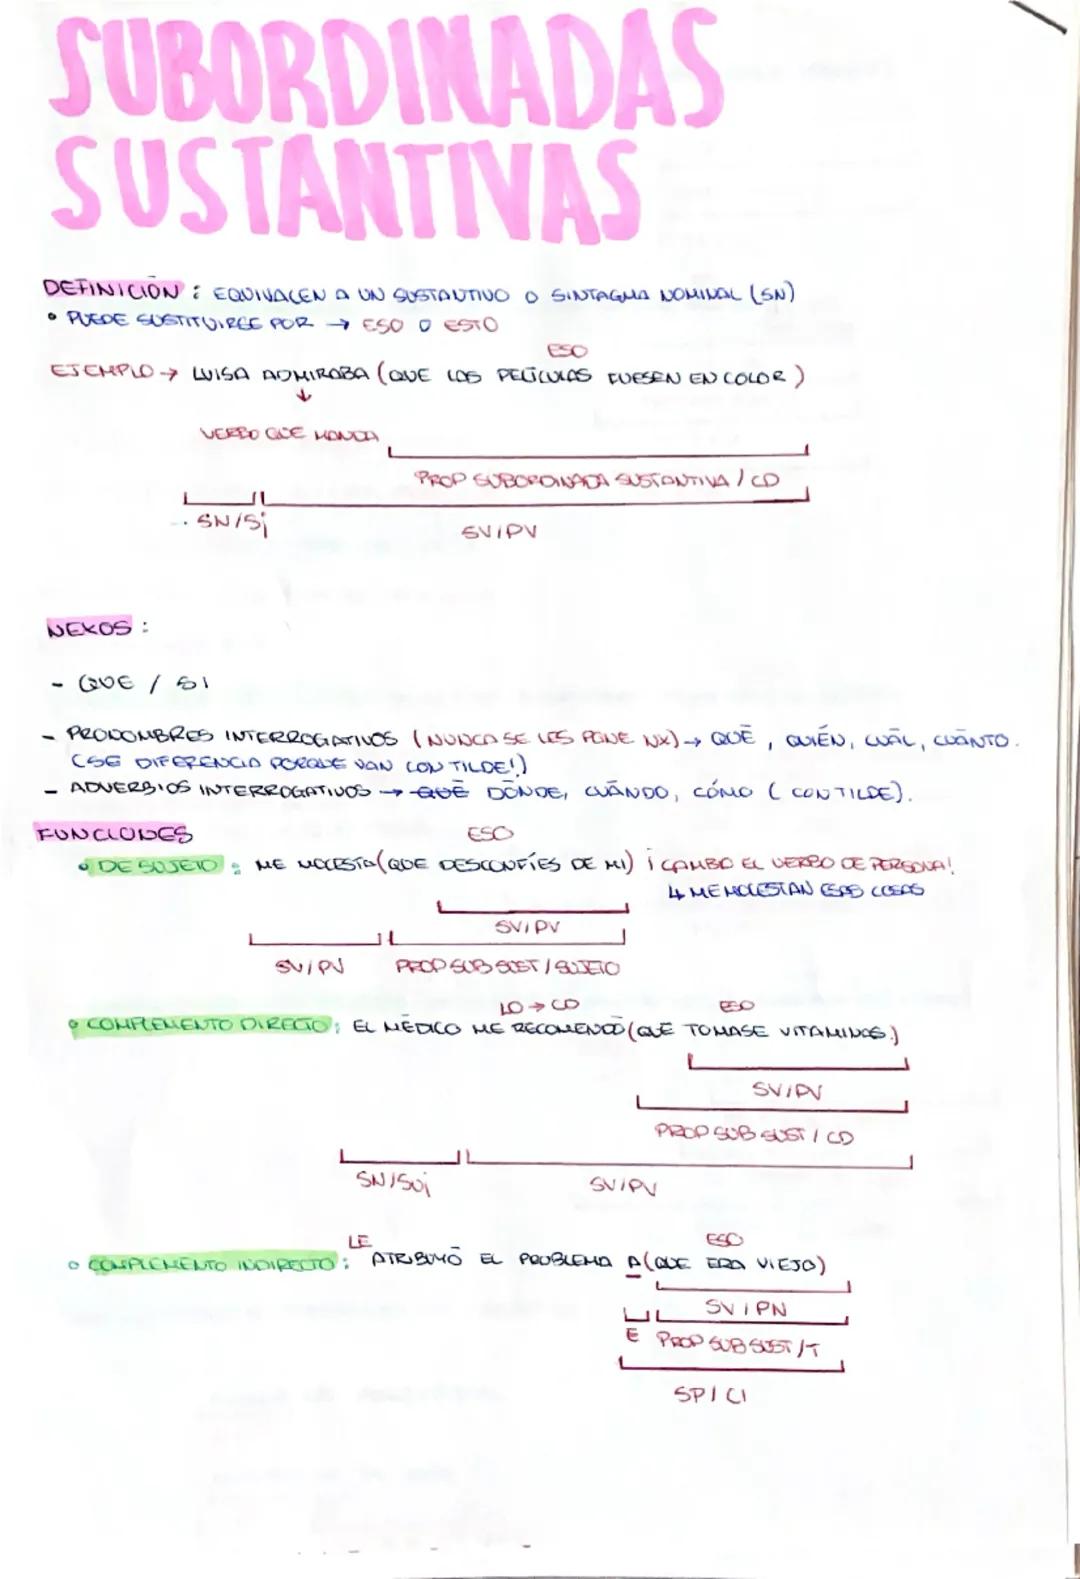 SUBORDINADAS
SUSTANTIVAS
DEFINICIÓN : EQUIVALEN A UN SUSTANTIVO O SINTAGMA NOMINAL (SN)
• PUEDE SUSTITUIRSE POR → ESO O ESTO
ESO
EJEMPLO → LUISA ADMIRABA (QUE LAS PELÍCULAS FUESEN EN COLOR)
↓
VERBO QUE MANDA
PROP SUBORDINADA SUSTANTIVA / CD
SN/Sj
SV/PV
NEXOS :
- QUE / SI
- PRONOMBRES INTERROGATIVOS (NUNCA SE LES PONE NX) → QUÉ, QUIÉN, CUÁL, CUÁNTO.
(SE DIFERENCIA PORQUE VAN CON TILDE!)
- ADVERBIOS INTERROGATIVOS → QUÉ DÓNDE, CUÁNDO, CÓMO (CON TILDE).
FUNCIONES
ESO
• DE SUJETO : ME MOLESTA (QUE DESCONFÍES DE MI) ¡CAMBIO EL VERBO DE PERSONA!
↳ ME MOLESTAN ESAS COSAS
SV/PV
SV/PV PROP SUB SUST / SUJETO
LO → CD ESO
• COMPLEMENTO DIRECTO : EL MÉDICO ME RECOMENDÓ (QUE TOMASE VITAMINAS.)
SV/PV
PROP SUB SUST / CD
SN/SUj SV/PV
LE ESO
• COMPLEMENTO INDIRECTO : ATRIBUYÓ EL PROBLEMA A (QUE ERA VIEJO)
SV/PN
E PROP SUB SUST /T
SP/CI